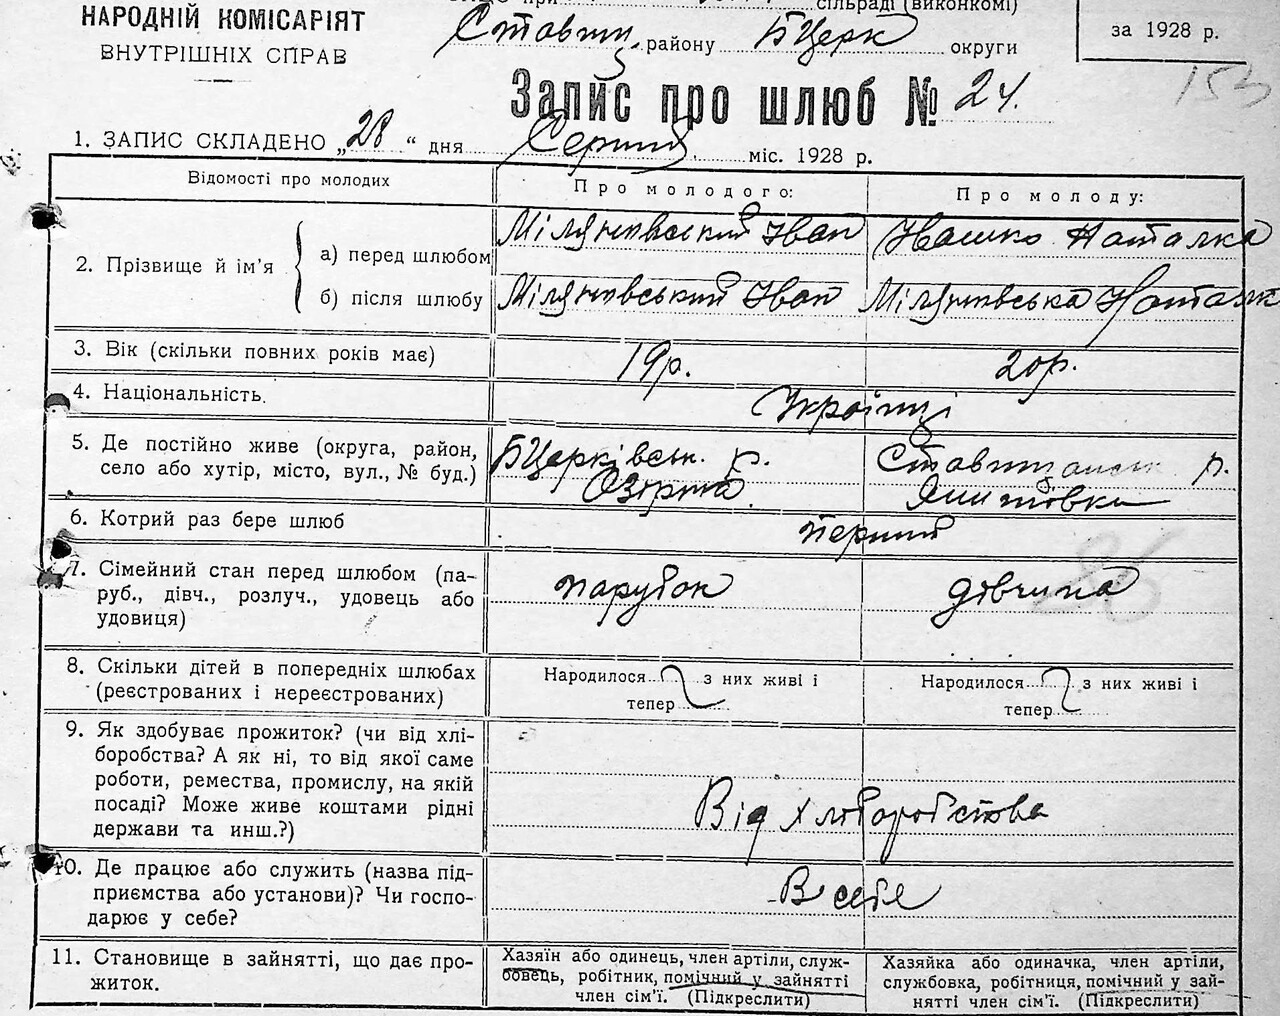 НАРОДНІЙ КОМІСАРІЯТ
ВНУТРІШНІХ СПРАВ
при сільраді (виконкомі)
Ставищ. району БЦерк округи
за 1928 р.
153
Запис про шлюб № 24.
1. ЗАПИС СКЛАДЕНО „28“ дня Серпня міс. 1928 р.
Відомості про молодих
Про молодого:
Про молоду:
2. Прізвище й ім'я
а) перед шлюбом
Іван
Івашко Наталка
б) після шлюбу
Іван
3. Вік (скільки повних років має)
19р.
20р.
4. Національність.
Українці
5. Де постійно живе (округа, район,
село або хутір, місто, вул., № буд.)
БЦерківськ. р.
Озірна
Ставищанськ р.
6. Котрий раз бере шлюб
перший
7. Сімейний стан перед шлюбом (па-
руб., дівч., розлуч., удовець або
удовиця)
парубок
дівчина
26
8. Скільки дітей в попередніх шлюбах
(реєстрованих і нереєстрованих)
Народилося з них живі і
тепер
Народилося з них живі і
тепер
9. Як здобуває прожиток? (чи від хлі-
боробства? А як ні, то від якої саме
роботи, ремества, промислу, на якій
посаді? Може живе коштами рідні
держави та инш.?)
Від хліборобства
10. Де працює або служить (назва під-
приємства або установи)? Чи госпо-
дарює у себе?
В себе
11. Становище в зайнятті, що дає про-
житок.
Хазяїн або одинець, член артіли, служ-
бовець, робітник, помічний у зайнятті
член сім'ї. (Підкреслити)
Хазяйка або одиначка, член артіли,
службовка, робітниця, помічний у зай-
нятті член сім'ї. (Підкреслити)